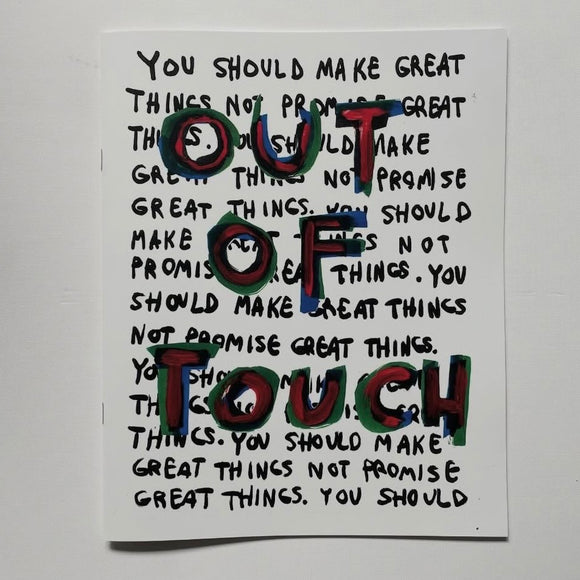 YOU SHOULD MAKE GREAT
THINGS NOT PROMISE GREAT
THINGS. YOU SHOULD MAKE
GREAT THINGS NOT PROMISE
GREAT THINGS. YOU SHOULD
MAKE GREAT THINGS NOT
PROMISE GREAT THINGS. YOU
SHOULD MAKE GREAT THINGS
NOT PROMISE GREAT THINGS.
YOU SHOULD MAKE GREAT
THINGS NOT PROMISE GREAT
THINGS. YOU SHOULD MAKE
GREAT THINGS NOT PROMISE
GREAT THINGS. YOU SHOULD
OUT
OF
TOUCH